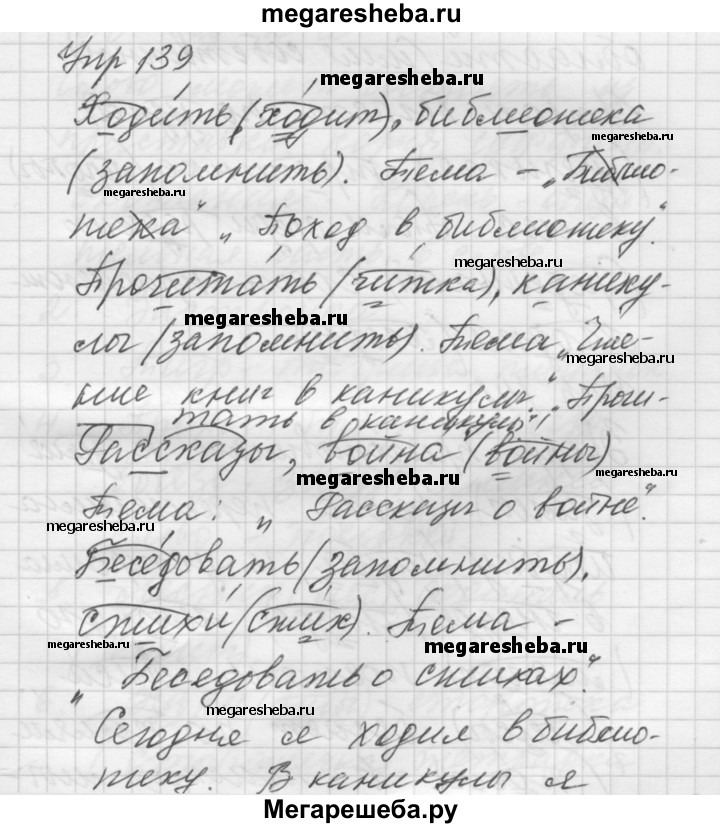 megaresheba.ru
Упр 139
megaresheba.ru
Ходить (ходит), библиотека
megaresheba.ru
(запомнить). Тема – „Библио-
megaresheba.ru
тека" „Поход в библиотеку."
megaresheba.ru
Прочитать (читка), канику-
megaresheba.ru
лы (запомнить). Тема „Чте-
ние книг в каникулы". „Прочи-
тать в каникулы".
Рассказы, война (войны)
megaresheba.ru
megaresheba.ru
Тема: „Рассказы о войне".
megaresheba.ru
Беседовать (запомнить),
megaresheba.ru
стихи (стих). Тема –
megaresheba.ru
megaresheba.ru
„Беседовать о стихах".
megaresheba.ru
Сегодня я ходил в библио-
теку. В каникулы я
Мегарешеба.ру